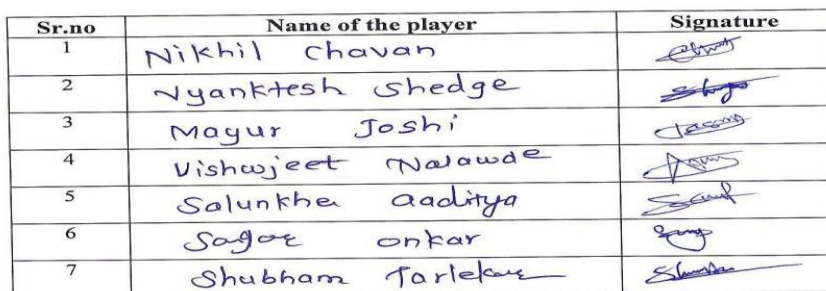 Sr.no Name of the player Signature
1 Nikhil Chavan
2 Vyanktesh Shedge
3 Mayur Joshi
4 Vishwjeet Nalawde
5 Salunkhe Aaditya
6 Sagar onkar
7 Shubham Tarlekar